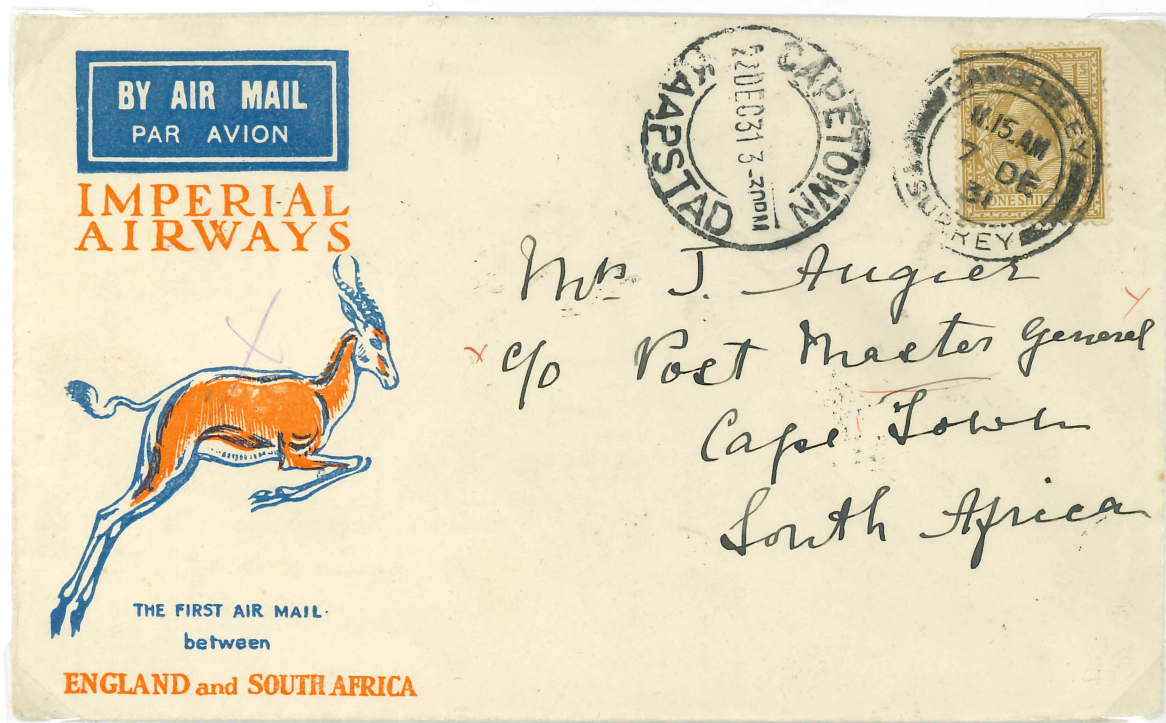 BY AIR MAIL
PAR AVION
IMPERIAL
AIRWAYS
THE FIRST AIR MAIL
between
ENGLAND and SOUTH AFRICA
CAPETOWN
22DEC31 3-30PM
KAAPSTAD
CAMBERLEY
11.15 AM
7 DE
31
SURREY
1S
ONE SHIL
Mrs J. Augier
c/o Post Master General
Cape Town
South Africa